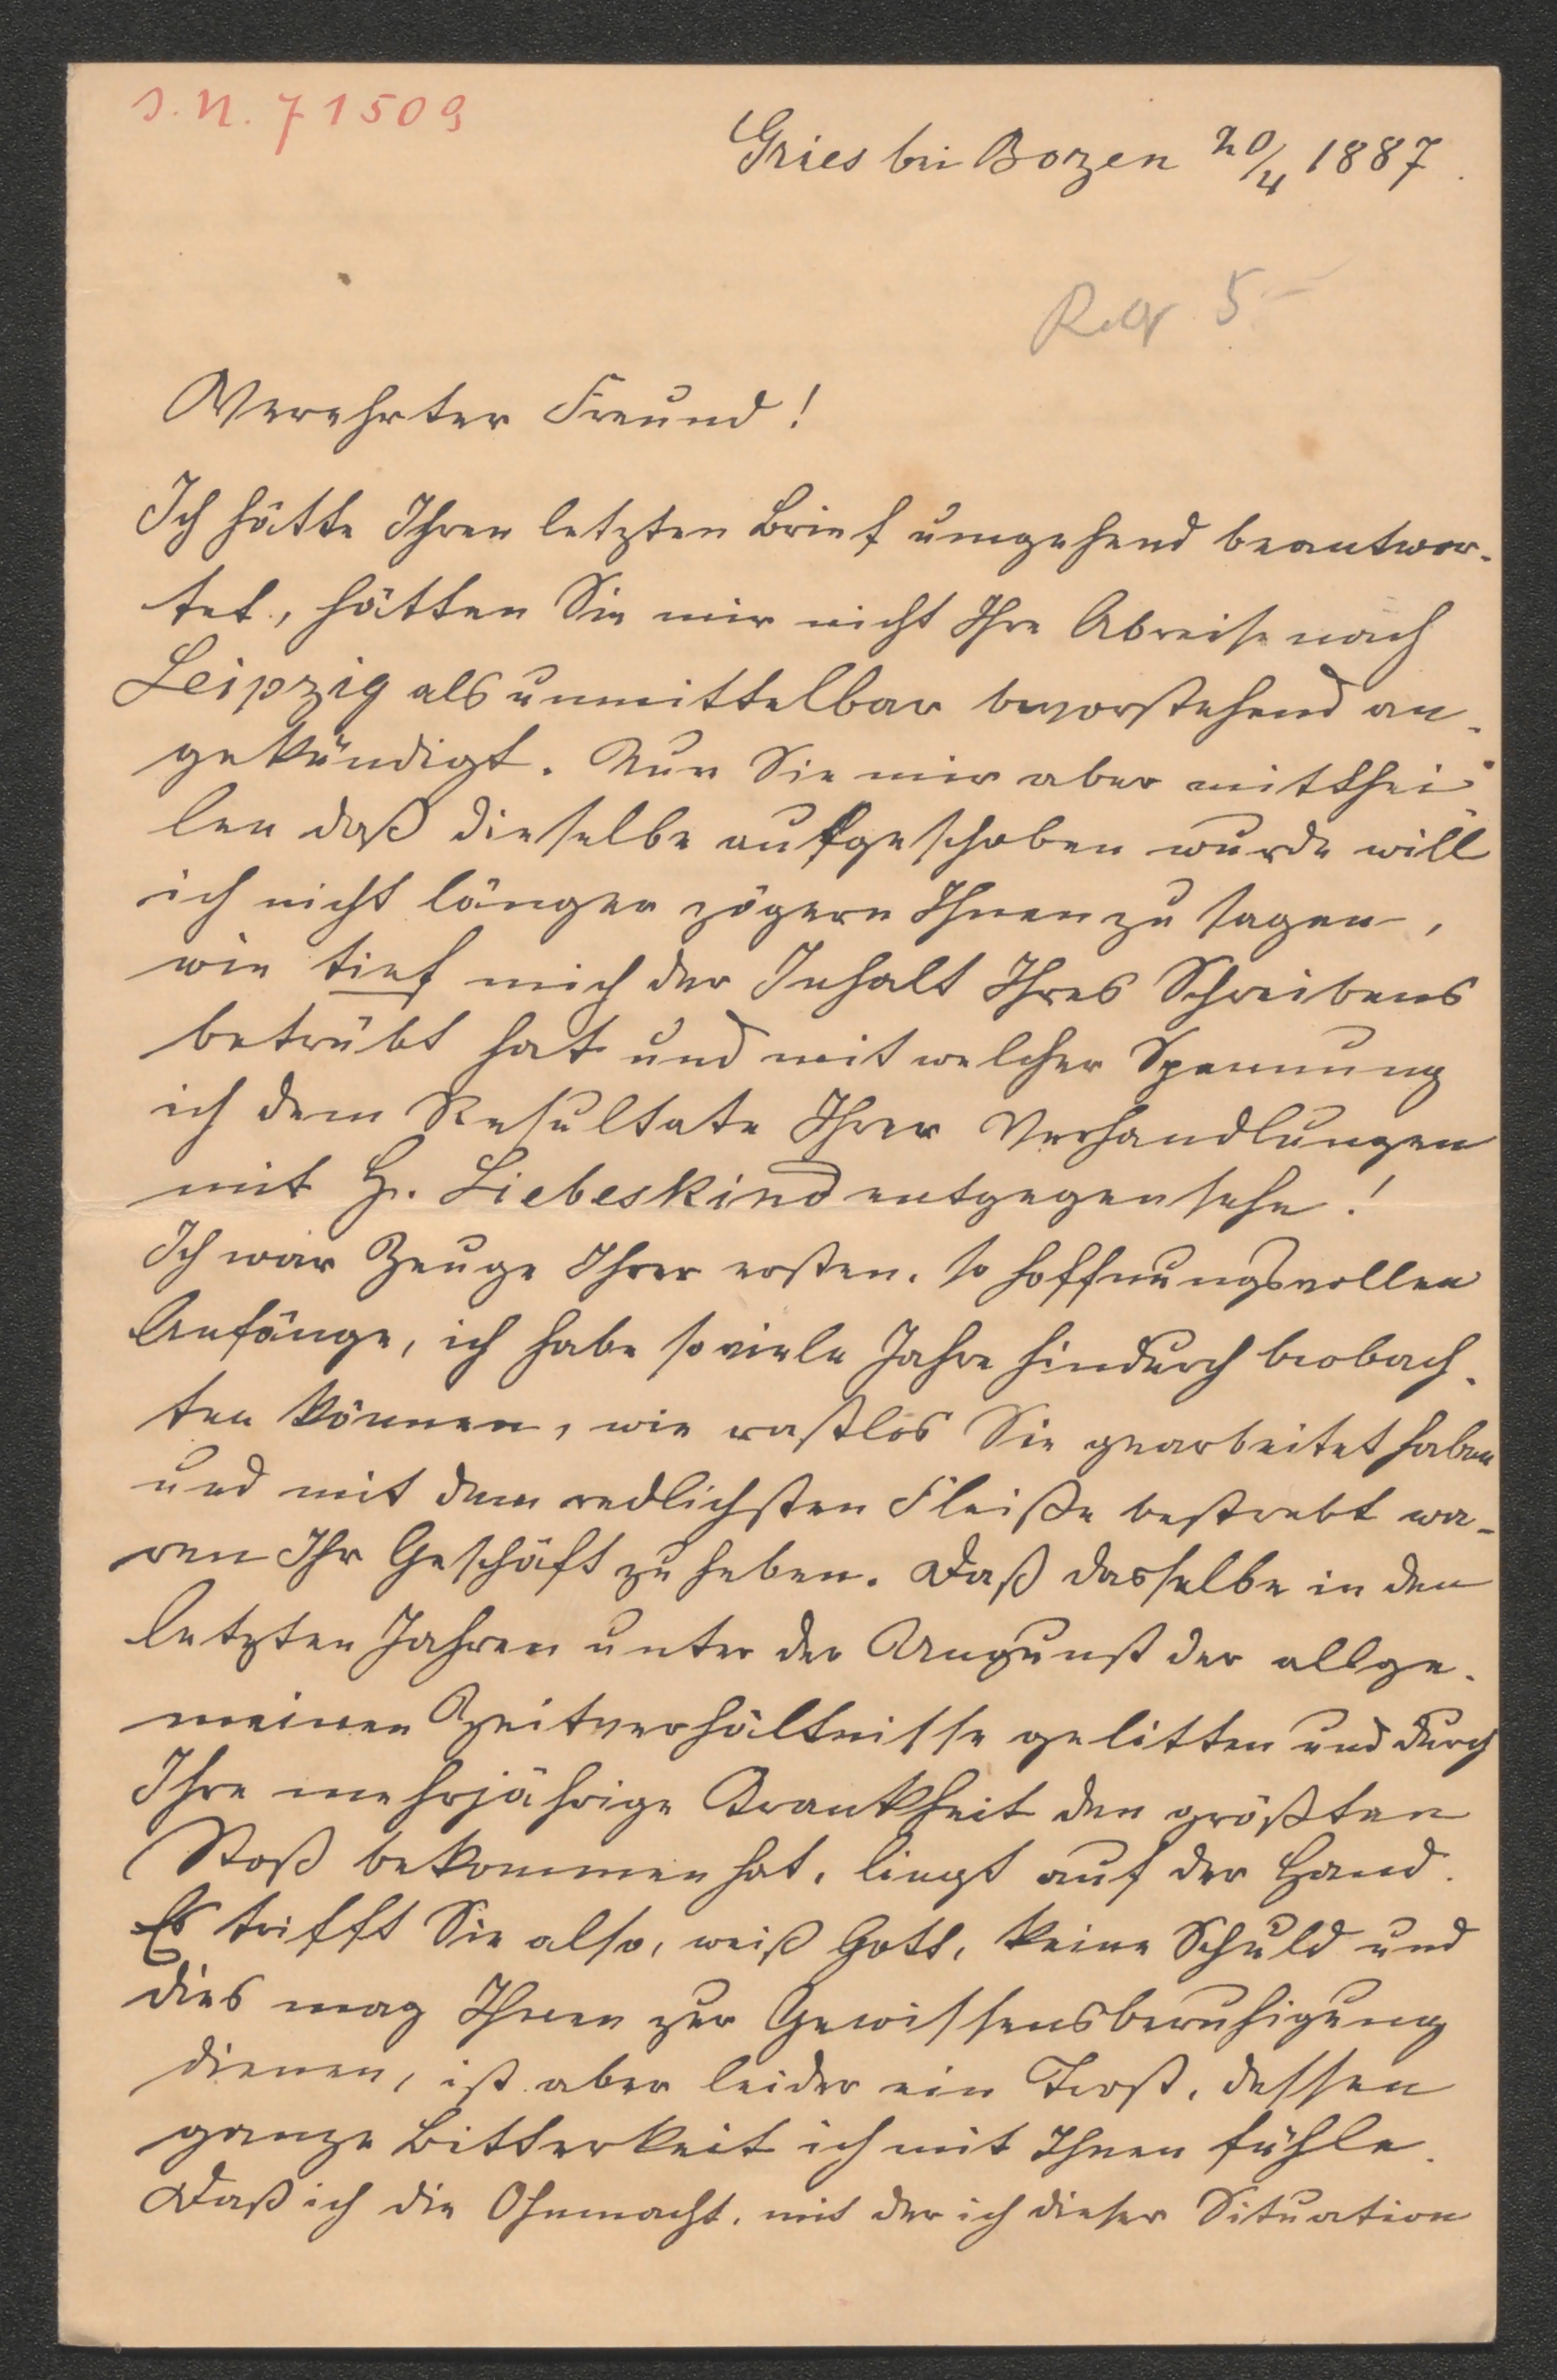 J.N. 71509
Gries bei Bozen 20/4 1887.
5–
Verehrter Freund!
Ich hätte Ihren letzten Brief umgehend beantwor-
tet, hätten Sie mir nicht Ihre Abreise nach
Leipzig als unmittelbar bevorstehend an-
gekündigt. Nun Sie mir aber mitthei-
len daß dieselbe aufgeschoben wurde will
ich nicht länger zögern Ihnen zu sagen,
wie tief mich der Inhalt Ihres Schreibens
betrübt hat und mit welcher Spannung
ich dem Resultate Ihrer Verhandlungen
mit H. Liebeskind entgegensehe!
Ich war Zeuge Ihrer ersten, so hoffnungsvollen
Anfänge, ich habe so viele Jahre hindurch beobach-
ten können, wie rastlos Sie gearbeitet haben
und mit dem redlichsten Fleiße bestrebt wa-
ren Ihr Geschäft zu heben. Daß dasselbe in den
letzten Jahren unter der Ungunst der allge-
meinen Zeitverhältnisse gelitten und durch
Ihre mehrjährige Krankheit den größten
Stoß bekommen hat, liegt auf der Hand.
Es trifft Sie also, weiß Gott, keine Schuld und
dies mag Ihnen zur Gewissensberuhigung
dienen, ist aber leider ein Trost, dessen
ganze Bitterkeit ich mit Ihnen fühle.
Daß ich die Ohnmacht, mit der ich dieser Situation